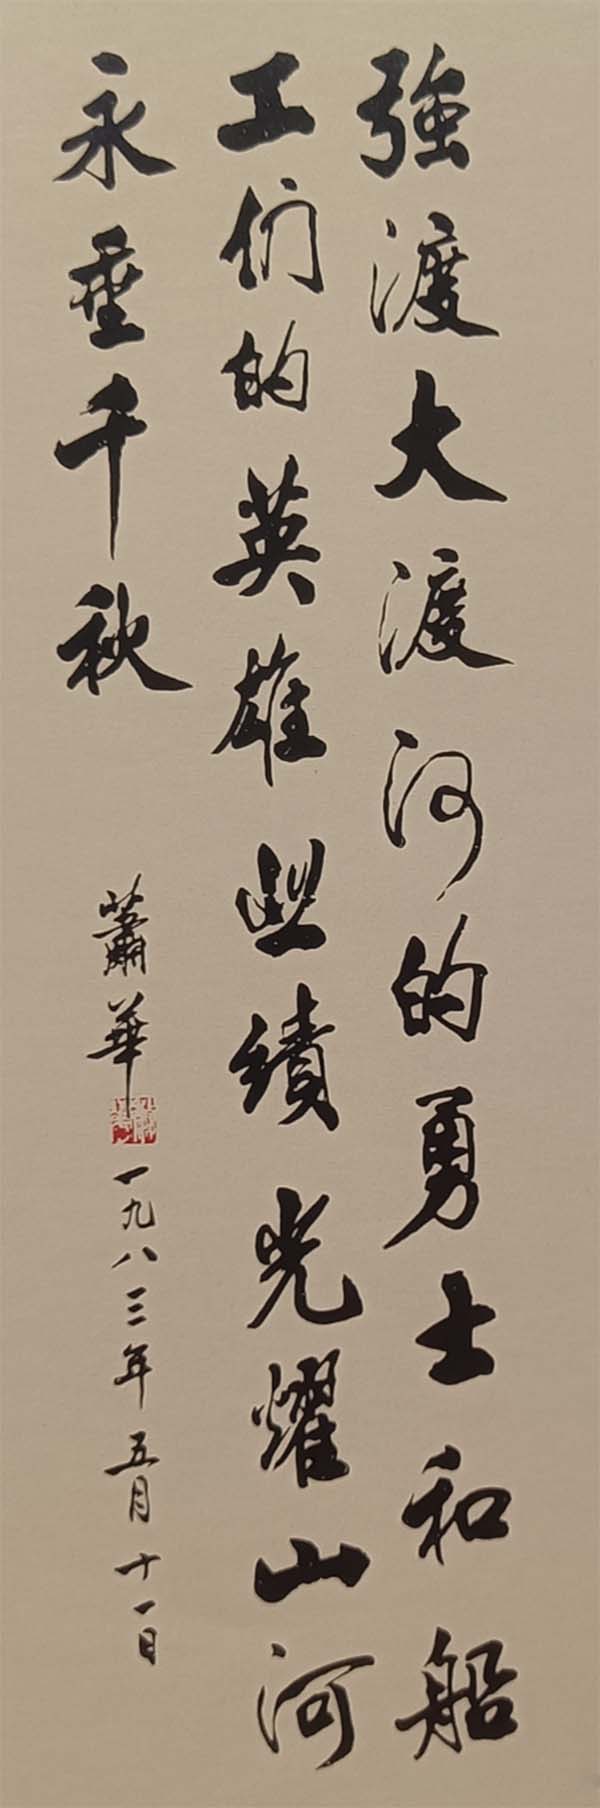 強渡大渡河的勇士和船
工们的英雄业绩光耀山河
永垂千秋
蕭華
一九八三年五月十一日